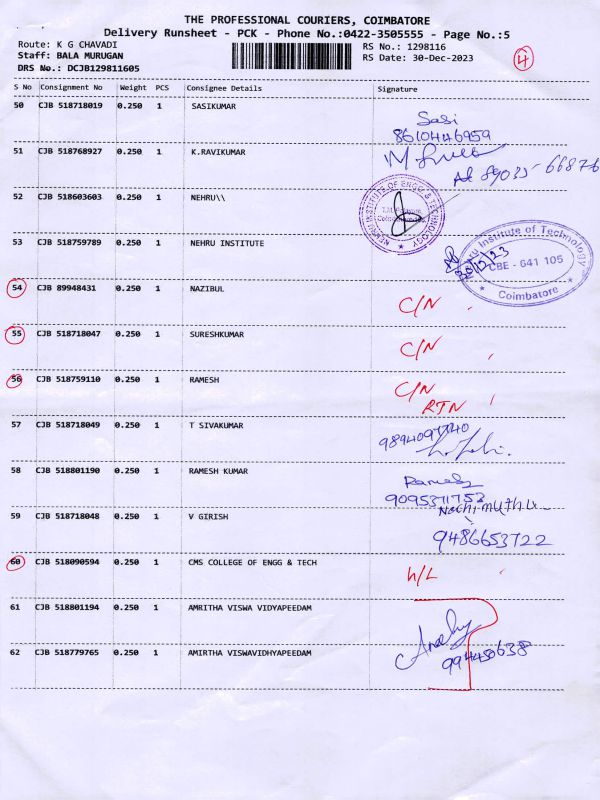 THE PROFESSIONAL COURIERS, COIMBATORE
Delivery Runsheet - PCK - Phone No.:0422-3505555 - Page No.:5
Route: K G CHAVADI
RS No.: 1298116
Staff: BALA MURUGAN
RS Date: 30-Dec-2023
4
DRS No.: DCJB129811605
S No Consignment No Weight PCS Consignee Details Signature
50 CJB 518718019 0.250 1 SASIKUMAR
Sasi
8610446959
51 CJB 518768927 0.250 1 K.RAVIKUMAR
52 CJB 518603603 0.250 1 NEHRU\\
NEHRU INSTITUTE OF ENGG & TECHNOLOGY
53 CJB 518759789 0.250 1 NEHRU INSTITUTE
Institute of Technology
CBE - 641 105
Coimbatore
30/12/23
54 CJB 89948431 0.250 1 NAZIBUL
C/N
55 CJB 518718047 0.250 1 SURESHKUMAR
C/N
56 CJB 518759110 0.250 1 RAMESH
C/N
RTN
57 CJB 518718049 0.250 1 T SIVAKUMAR
58 CJB 518801190 0.250 1 RAMESH KUMAR
Ramesh
9095311753
59 CJB 518718048 0.250 1 V GIRISH
Nachimuthu
9486653722
60 CJB 518090594 0.250 1 CMS COLLEGE OF ENGG & TECH
H/L
61 CJB 518801194 0.250 1 AMRITHA VISWA VIDYAPEEDAM
62 CJB 518779765 0.250 1 AMIRTHA VISWAVIDHYAPEEDAM